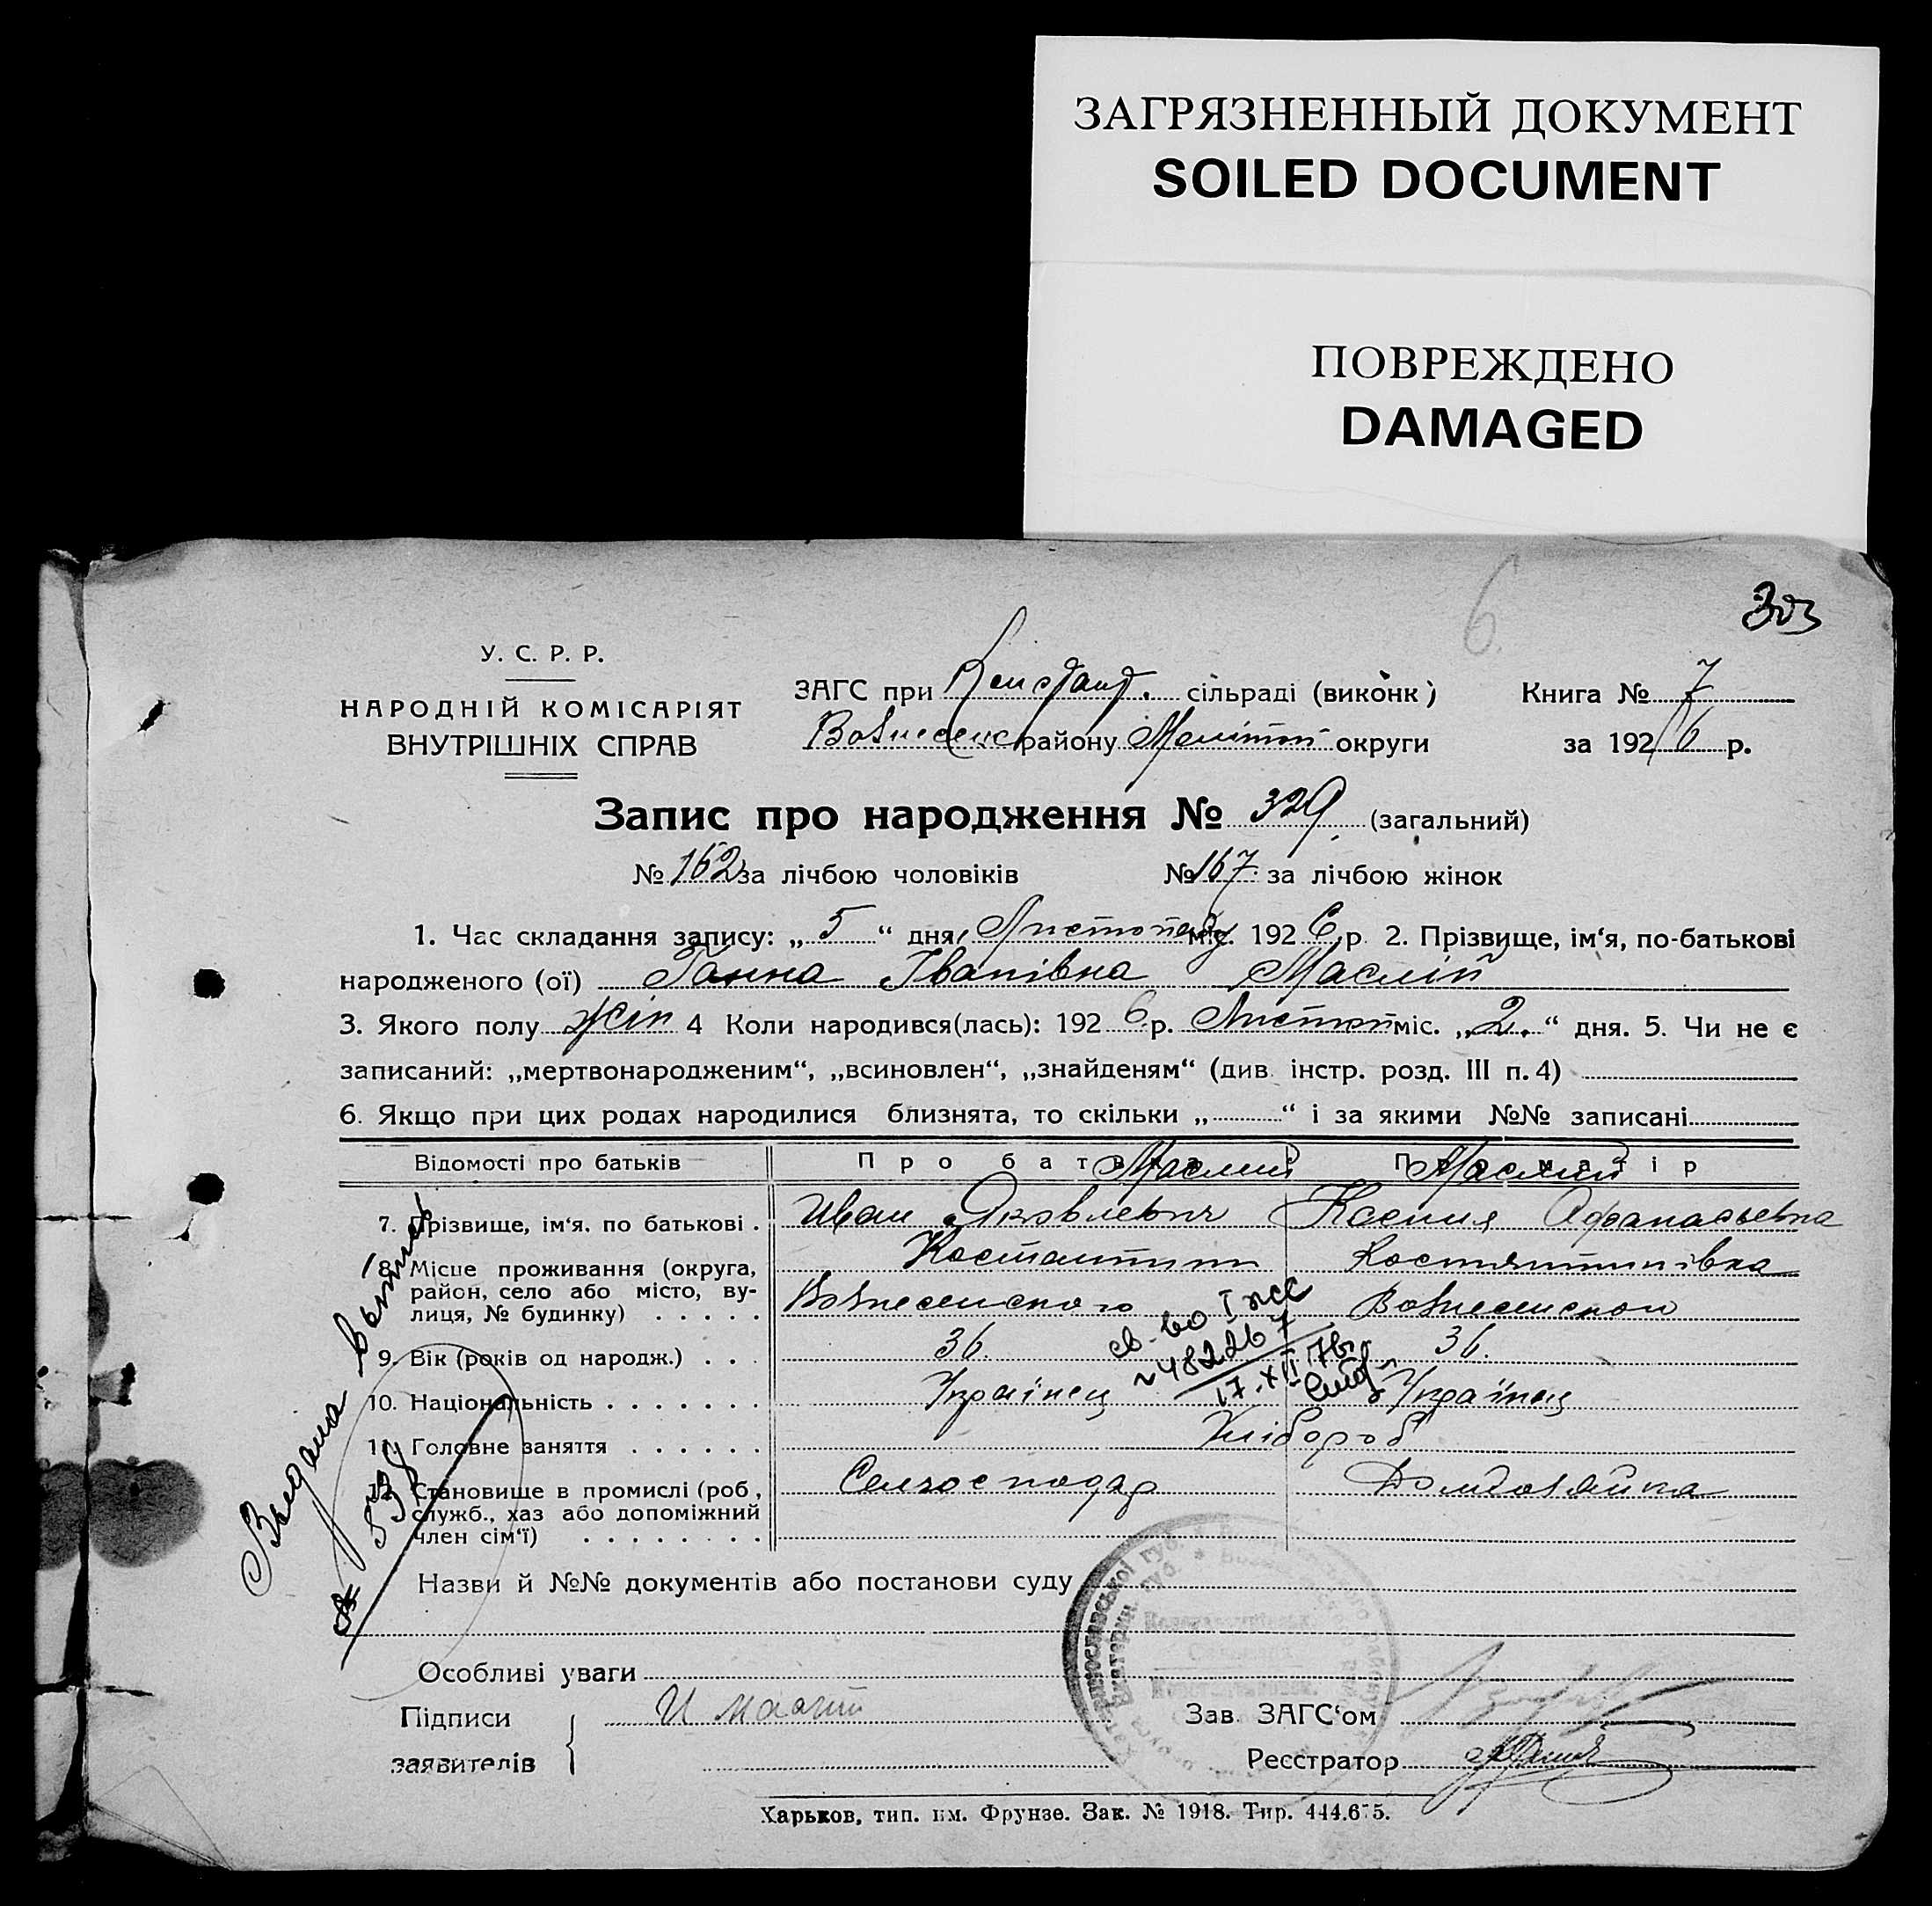 ЗАГРЯЗНЕННЫЙ ДОКУМЕНТ
SOILED DOCUMENT
ПОВРЕЖДЕНО
DAMAGED
6
303
У. С. Р. Р.
НАРОДНІЙ КОМІСАРІЯТ
ВНУТРІШНІХ СПРАВ
ЗАГС при Констант. сільраді (виконк) Книга № 7
Вознесенс району Меліт округи за 1926 р.
Запис про народження № 329 (загальний)
№ 162 за лічбою чоловіків № 167 за лічбою жінок
1. Час складання запису: „5“ дня, Листопаду міс. 1926 р. 2. Прізвище, ім‘я, по-батькові
народженого (ої) Ганна Іванівна Маслій
3. Якого полу жін 4 Коли народився(лась): 1926 р. Листоп міс. „2.“ дня. 5. Чи не є
записаний: „мертвонародженим“, „всиновлен“, „знайденям“ (див. інстр. розд. III п. 4)
6. Якщо при цих родах народилися близнята, то скільки „ “ і за якими №№ записані
Відомості про батьків Про батька Про матір
Маслий Маслий
7. Прізвище, ім‘я, по батькові . Иван Яковлевич Ксения Афанасьевна
8. Місце проживання (округа, район, село або місто, вулиця, № будинку) . . . . .
Костантин Костянтинівка
Вознесенского Вознесенского
9. Вік (років од народж.) . . . 36. 36.
св-во I жс
~482267
17.XII.76г
10. Національність . . . . . . . Українец Українец
11. Головне заняття . . . . . . Хлібороб
12. Становище в промислі (роб, служб., хаз або допоміжний член сім‘ї) . . . . . . . .
Селгосподар Домхозяйка
Выдана выпись
538
Назви й №№ документів або постанови суду
Особливі уваги
Підписи И Маслий Зав. ЗАГС‘ом
заявителів Реєстратор
Харьков, тип. им. Фрунзе. Зак. № 1918. Тир. 444.675.